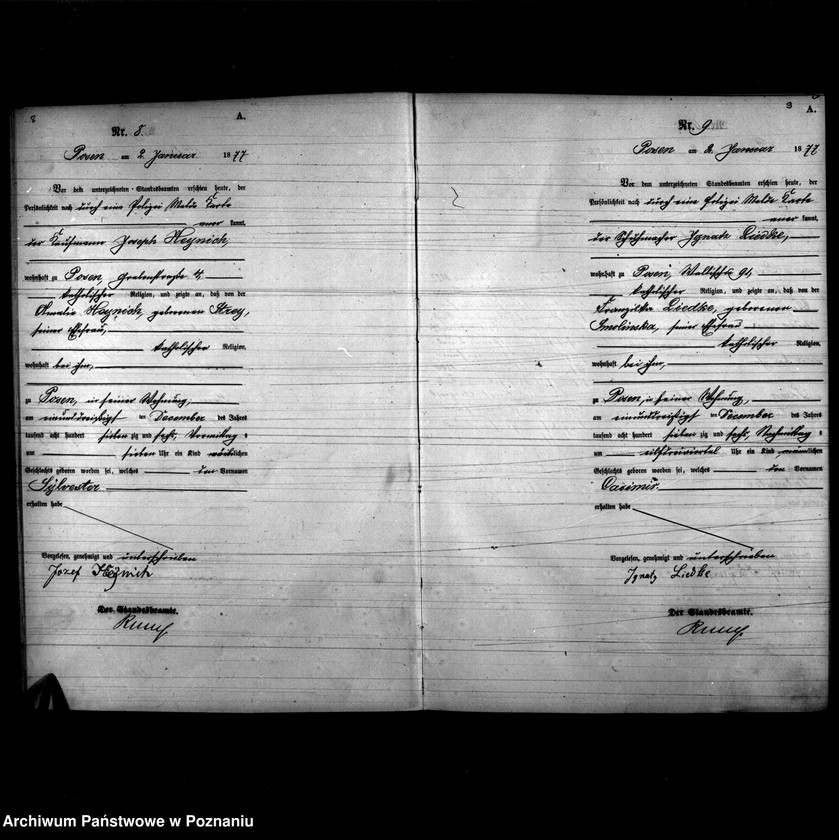 8
A.
Nr. 8.
Posen am 2. Januar 1877
Vor dem unterzeichneten Standesbeamten erschien heute, der
Persönlichkeit nach durch eine Polizei Melde Karte
kannt,
der Kaufmann Joseph Heynich,
wohnhaft zu Posen, Grabenstraße 4,
katholischer Religion, und zeigte an, daß von der
Amalie Heynich, geborenen Strey,
seiner Ehefrau,
katholischer Religion,
wohnhaft bei ihm,
zu Posen, in seiner Wohnung,
am einunddreißigst ten December des Jahres
tausend acht hundert sieben zig und sechs, Vormittag s
um sieben Uhr ein Kind männlichen
Geschlechts geboren worden sei, welches den Vornamen
Sylvester
erhalten habe
Vorgelesen, genehmigt und unterschrieben
Jozef Heynich
Der Standesbeamte.
9
A.
Nr. 9
Posen am 2. Januar 1877
Vor dem unterzeichneten Standesbeamten erschien heute, der
Persönlichkeit nach durch eine Polizei Melde Karte
kannt,
der Schuhmacher Ignatz Liedke,
wohnhaft zu Posen, Wallischei 91,
katholischer Religion, und zeigte an, daß von der
Franziska Liedke, geborenen
Smolinska, seiner Ehefrau
katholischer Religion,
wohnhaft bei ihm,
zu Posen, in seiner Wohnung,
am einunddreißigst ten December des Jahres
tausend acht hundert sieben zig und sechs, Nachmittag s
um elfdreiviertel Uhr ein Kind männlichen
Geschlechts geboren worden sei, welches den Vornamen
Casimir
erhalten habe
Vorgelesen, genehmigt und unterschrieben
Ignatz Liedke
Der Standesbeamte.
Archiwum Państwowe w Poznaniu